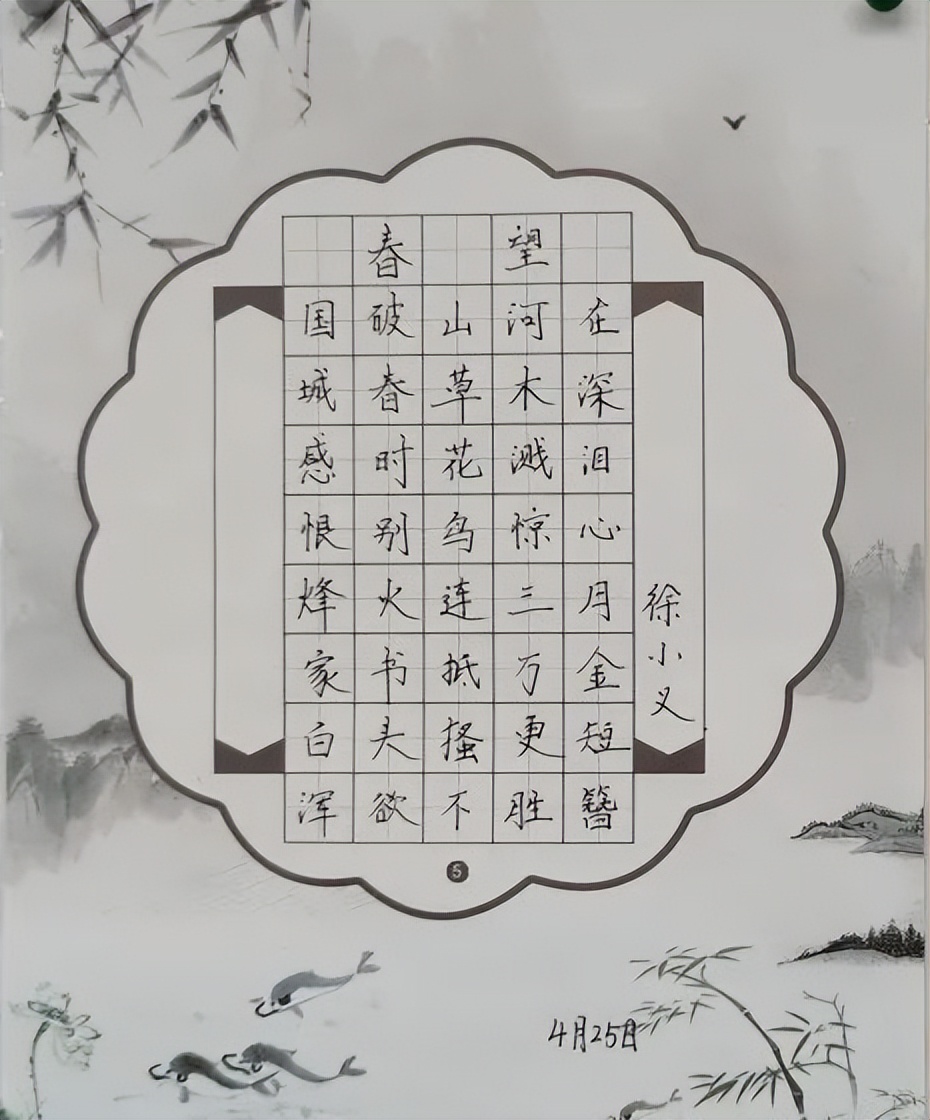 春望
国破山河在
城春草木深
感时花溅泪
恨别鸟惊心
烽火连三月
家书抵万金
白头搔更短
浑欲不胜簪
徐小义
5
4月25日